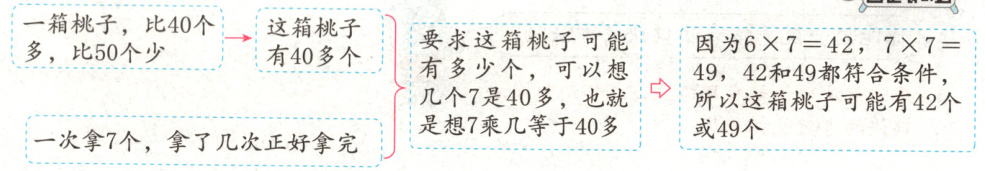 一箱桃子，比40个
多，比50个少
这箱桃子
有40多个
一次拿7个，拿了几次正好拿完
要求这箱桃子可能
有多少个，可以想
几个7是40多，也就
是想7乘几等于40多
因为6×7＝42，7×7＝
49，42和49都符合条件，
所以这箱桃子可能有42个
或49个